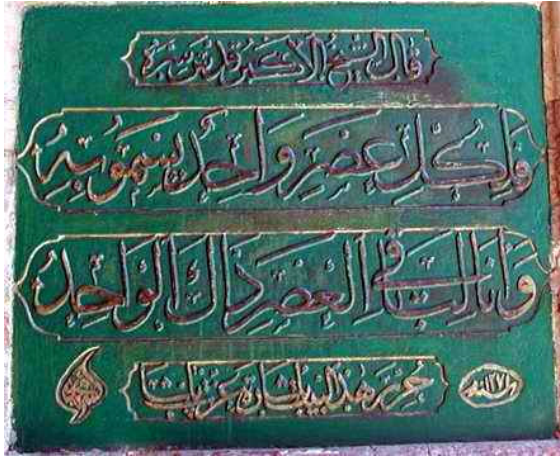 قال الشيخ الاكبر قدس سره
وَلِكُلِّ عَصْرٍ وَاحِدٌ يَسْمُو بِهِ
وَأَنَا لِبَاقِي العَصْرِ ذَاكَ الوَاحِدُ
حرر هذا البيت باشارة عزت باشا